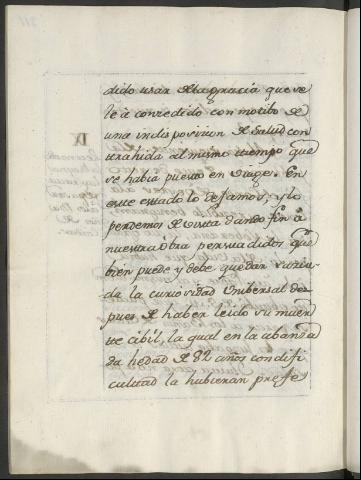 dido usar de la gracia que se
le à concedido con motibo de
una indisposicion de Salud con
trahida al mismo tiempo que
se habia puesto en viage. En
este estado lo dejamos, y lo
perdemos de vista dando fin à
nuestra obra persuadidos que
bien puede y debe quedar sacia-
da la curiosidad Unibersal des
pues de haber leido su muer
te cibil, la qual en la abanza
da hedad de 92 años con difi
cultad la hubieran prefe
IX